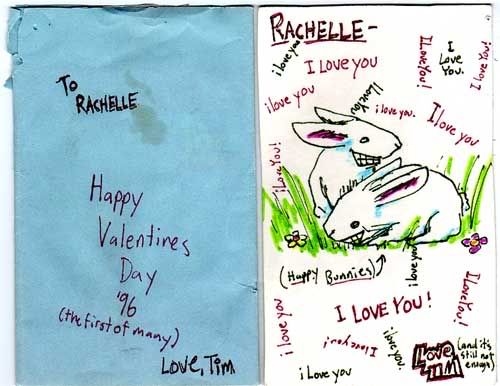 To
RACHELLE
Happy
Valentines
Day
'96
(the first of many)
Love, Tim
RACHELLE-
i love you
I love you
I Love You!
I
Love
You.
I love you!
i love you
I love you
i love you.
I love you
i Love You!
(Happy Bunnies)
i love you
I Love You!
i love you
I LOVE YOU!
I love you!
i love you.
i Love You
LOVE
TIM
(and it's
still not
enough)